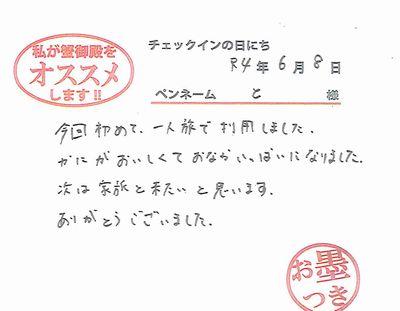 私が蟹御殿を
オススメ
します!!
チェックインの日にち
R4年6月8日
ペンネーム と 様
今回初めて、一人旅で利用しました.
かにがおいしくておなかいっぱいになりました.
次は家族と来たいと思います.
ありがとうございました.
お墨
つき